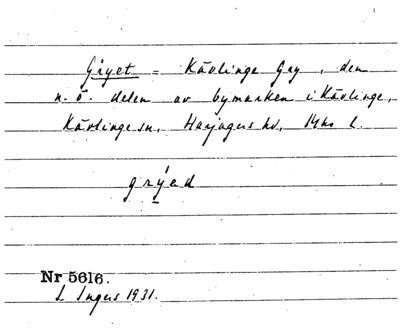 Gryet = Kävlinge Gry, den
n. ö. delen av bymarken i Kävlinge,
Kävlinge sn, Harjagers hd, M-hus l.
gryed
Nr 5616.
1931.